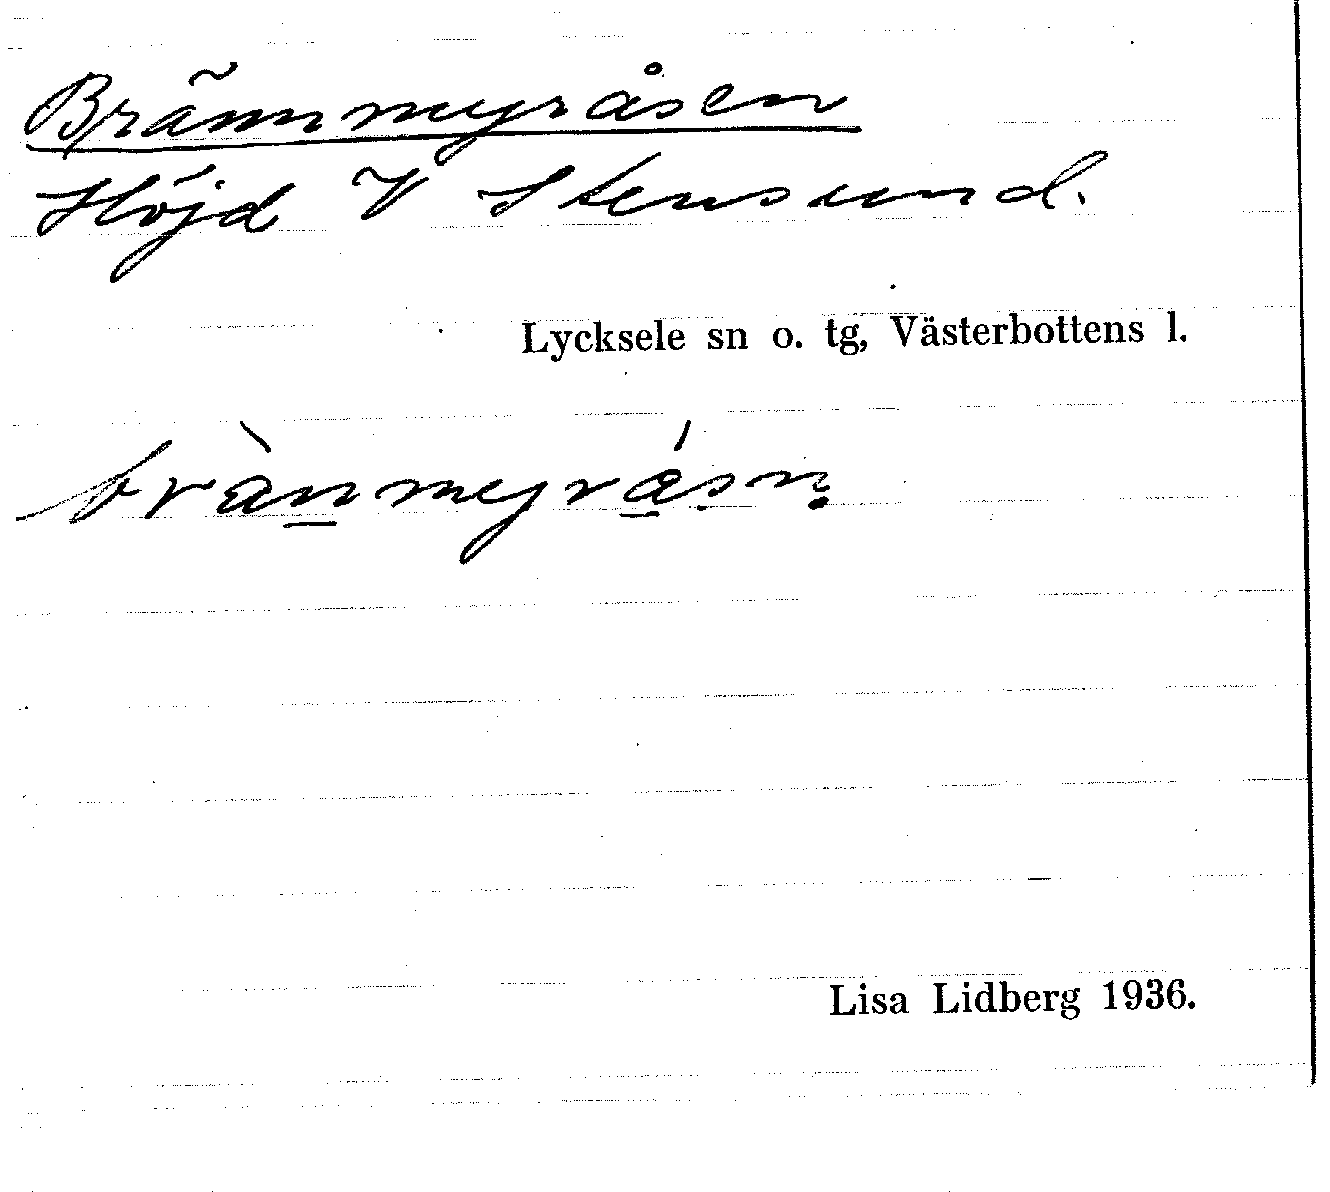 Brännmyråsen
Höjd V Stensund.
Lycksele sn o. tg, Västerbottens l.
brànmyrásṇ
Lisa Lidberg 1936.